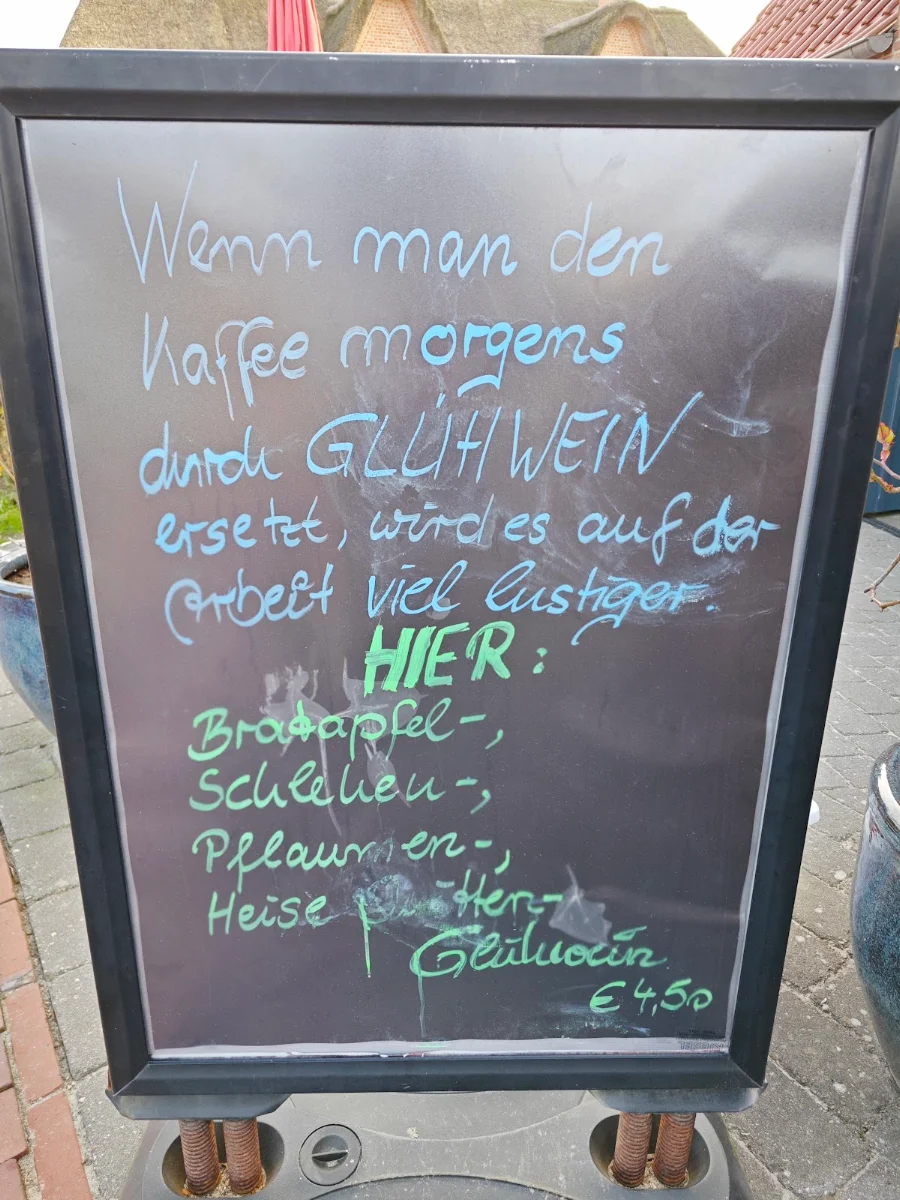 Wenn man den
Kaffee morgens
durch GLÜHWEIN
ersetzt, wird es auf der
Arbeit viel lustiger.
HIER:
Bratapfel-,
Schlehen-,
Pflaumen-,
Heise
Glühwein
€ 4,50